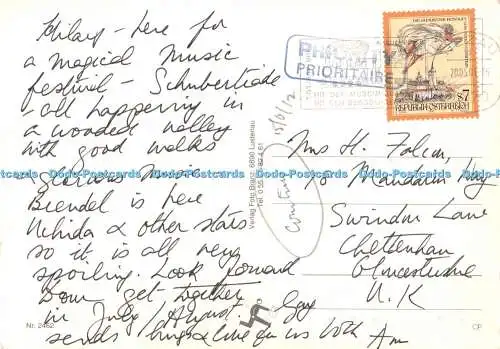 Hilary - here for
a magical music
festival - Schubertiade
- all happening in
a wooded valley
with good walks
Glorious music
Brendel is here
Uchida & other stars
so it is all very
spoiling. Look forward
to our get together
in July / August
sends hugs & love from us both
PRIORITAIRE
REPUBLIK ÖSTERREICH
S 7
15/6/12
Verlag Foto Branz, 6890 Lustenau
Mrs H. Falcon,
70 Mandarin Way
Swindon Lane
Cheltenham
Gloucestershire
U.K
Nr. 2462
CP
Dodo-Postcards Dodo-Postcards Dodo-Postcards Dodo-Postcards Dodo-Postcards Dodo-Postcards